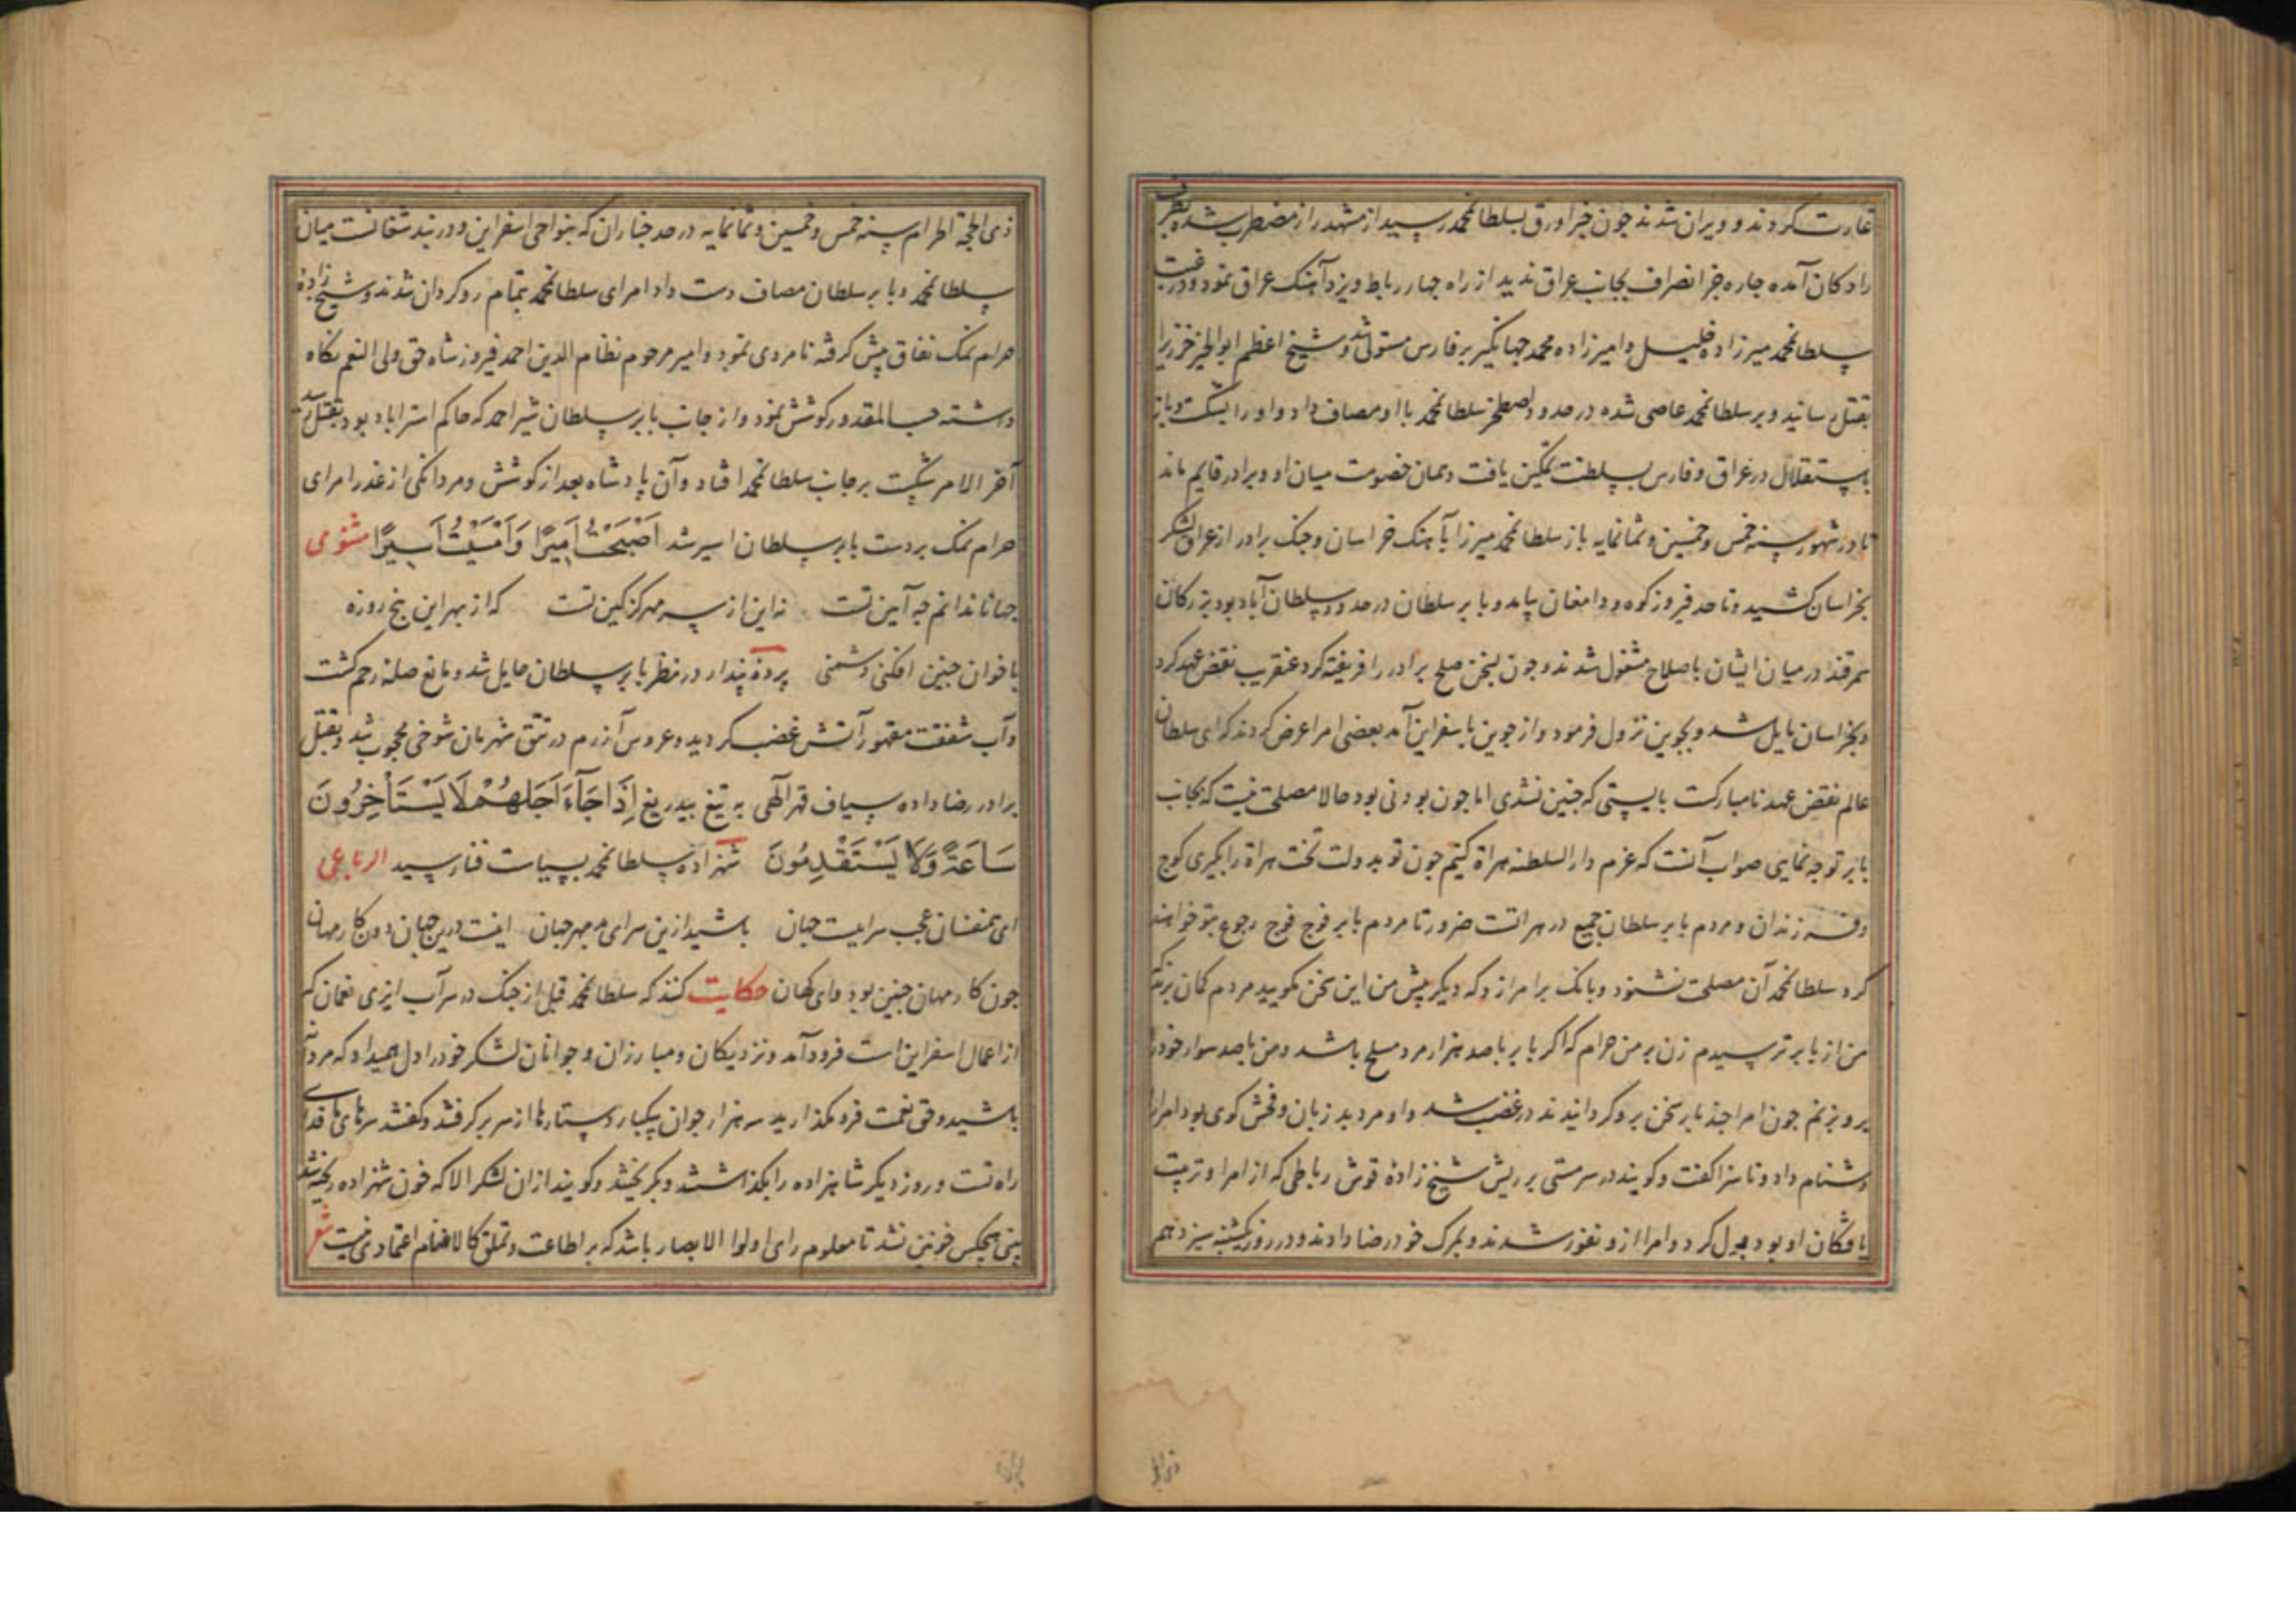 غارت کردند و ویران شدند چون خبر اورق بسلطانمحمد رسید از مشهد راز مضطرب شده بطرف
رادکان آمده چاره جز انصراف بجانب عراق ندید از راه چهار رباط ویزد آهنک عراق نمود و در غیبت
سلطانمحمد میرزاده خلیل و امیرزاده محمد جهانکیر بر فارس مستولی شد و شیخ اعظم ابوالخیر خزر را
بقتل رسانید و بر سلطانمحمد عاصی شده در حدود اصطخر سلطانمحمد با او مصاف داد و او را بشکست و باز
باستقلال در عراق و فارس بسلطنت تمکین یافت و همان خصومت میان او و برادر قایم ماند
تا در شهور سنه خمس و خمسین و ثمانمایه باز سلطانمحمد میرزا بآهنک خراسان و جنک برادر از عراق لشکر
بخراسان کشید و تا حد فیروزکوه و دامغان بیامد و بابر سلطان در حدود سلطان آباد بود بزرکان
سمرقند در میان ایشان باصلاح مشغول شدند و چون بسخن صلح برادر را فریفته کرد عنقریب نقض عهد کرد
و بخراسان مایل شد و بجوین نزول فرمود و از جوین باسفراین آمد بعضی امرا عرض کردند که ای سلطان
عالم نقض عهد نامبارکست بایستی که چنین نشدی اما چون بودنی بود حالا مصلحت نیست که بجانب
بابر توجه نمایی صواب آنست که عزم دار السلطنه هراة کنیم چون تو بدولت تخت هراة را بکیری کوچ
و فرزندان و مردم بابر سلطان جمیع در هراتست ضرورتا مردم بابر فوج فوج رجوع بتو خواهند
کرد سلطانمحمد آن مصلحت نشنود و بانک بر امرا زد که دیکر پیش من این سخن مکویید مردم کمان برند که
من از بابر ترسیدم زن بر من حرام که اکر بابر با صد هزار مرد مسلح باشد و من با صد سوار خود را
برو بزنم چون امرا چند بار سخن برو کردانیدند در غضب شد و او مرد بد زبان و فحش کوی بود امرا را
دشنام داد و ناسزا کفت و کویند در سرمستی بر ریش شیخ زاده قوش رباطی که از امرا و تربیت
یافتکان او بود بول کرد و امرا ازو نفور شدند و بمرک خود رضا دادند و در روز یکشنبه سیزدهم
ذی الحجة الحرام سنه خمس و خمسین و ثمانمایه در حد چناران که بنواحی اسفراین و در بند شقانست میان
سلطانمحمد و بابر سلطان مصاف دست داد امرای سلطانمحمد بتمام روکردان شدند و شیخ زاده
حرام نمک نفاق پیش کرفته نامردی نمود و امیر مرحوم نظام الدین احمد فیروزشاه حق ولی النعم نکاه
داشته حسب المقدور کوشش نمود و از جانب بابر سلطان شیر احمد که حاکم استراباد بود بقتل رسید
آخر الامر شکست بر جانب سلطانمحمد افتاد و آن پادشاه بعد از کوشش و مردانکی از غدر امرای
حرام نمک بر دست بابر سلطان اسیر شد اَصْبَحْتُ اَمِیْرًا وَاَمْسَیْتُ اَسِیرًا مثنوی
جهانا ندانم چه آیین تست نه این از سر مهر کز کین تست که از بهر این پنج روزه
باخوان چنین افکنی دشمنی پردهٔ پندار در نظر بابر سلطان حایل شد و مانع صلهٔ رحم کشت
و آب شفقت مقهور آتش غضب کردید و عروس آزرم در تتق شهربان شوخی محجوب شد و بقتل
برادر رضا داده سیاف قهر الهی به تیغ بیدریغ اِذَا جَآءَ اَجَلُهُمْ لَا یَسْتَأْخِرُونَ
سَاعَةً وَلَا یَسْتَقْدِمُونَ شهزاده سلطانمحمد بسیاست فنا رسید الرباعی
ای همنفسان عجب سراییست جهان باشید ازین سرای بر مهر جهان اینست درین جهان دون کار مهان
چون کار مهان چنین بود وای کهان حکایت کنند که سلطانمحمد قبل از جنک در سرآب ایزی نعمان که
از اعمال اسفراین است فرود آمد و نزدیکان و مبارزان و جوانان لشکر خود را دل میداد که مردانه
باشید و حق نعمت فرو مکذارید سه هزار جوان بیکبار دستارها از سر بر کرفتند و کفتند سرهای ما فدای
راه تست و روز دیکر شاهزاده را بکذاشتند و بکریختند و کویند از ان لشکر الا که خون شهزاده ریخته شد
بینی هیچکس خونین نشد تا معلوم رای اولوا الابصار باشد که بر اطاعت و تملق کالانعام اعتمادی نیست شعر